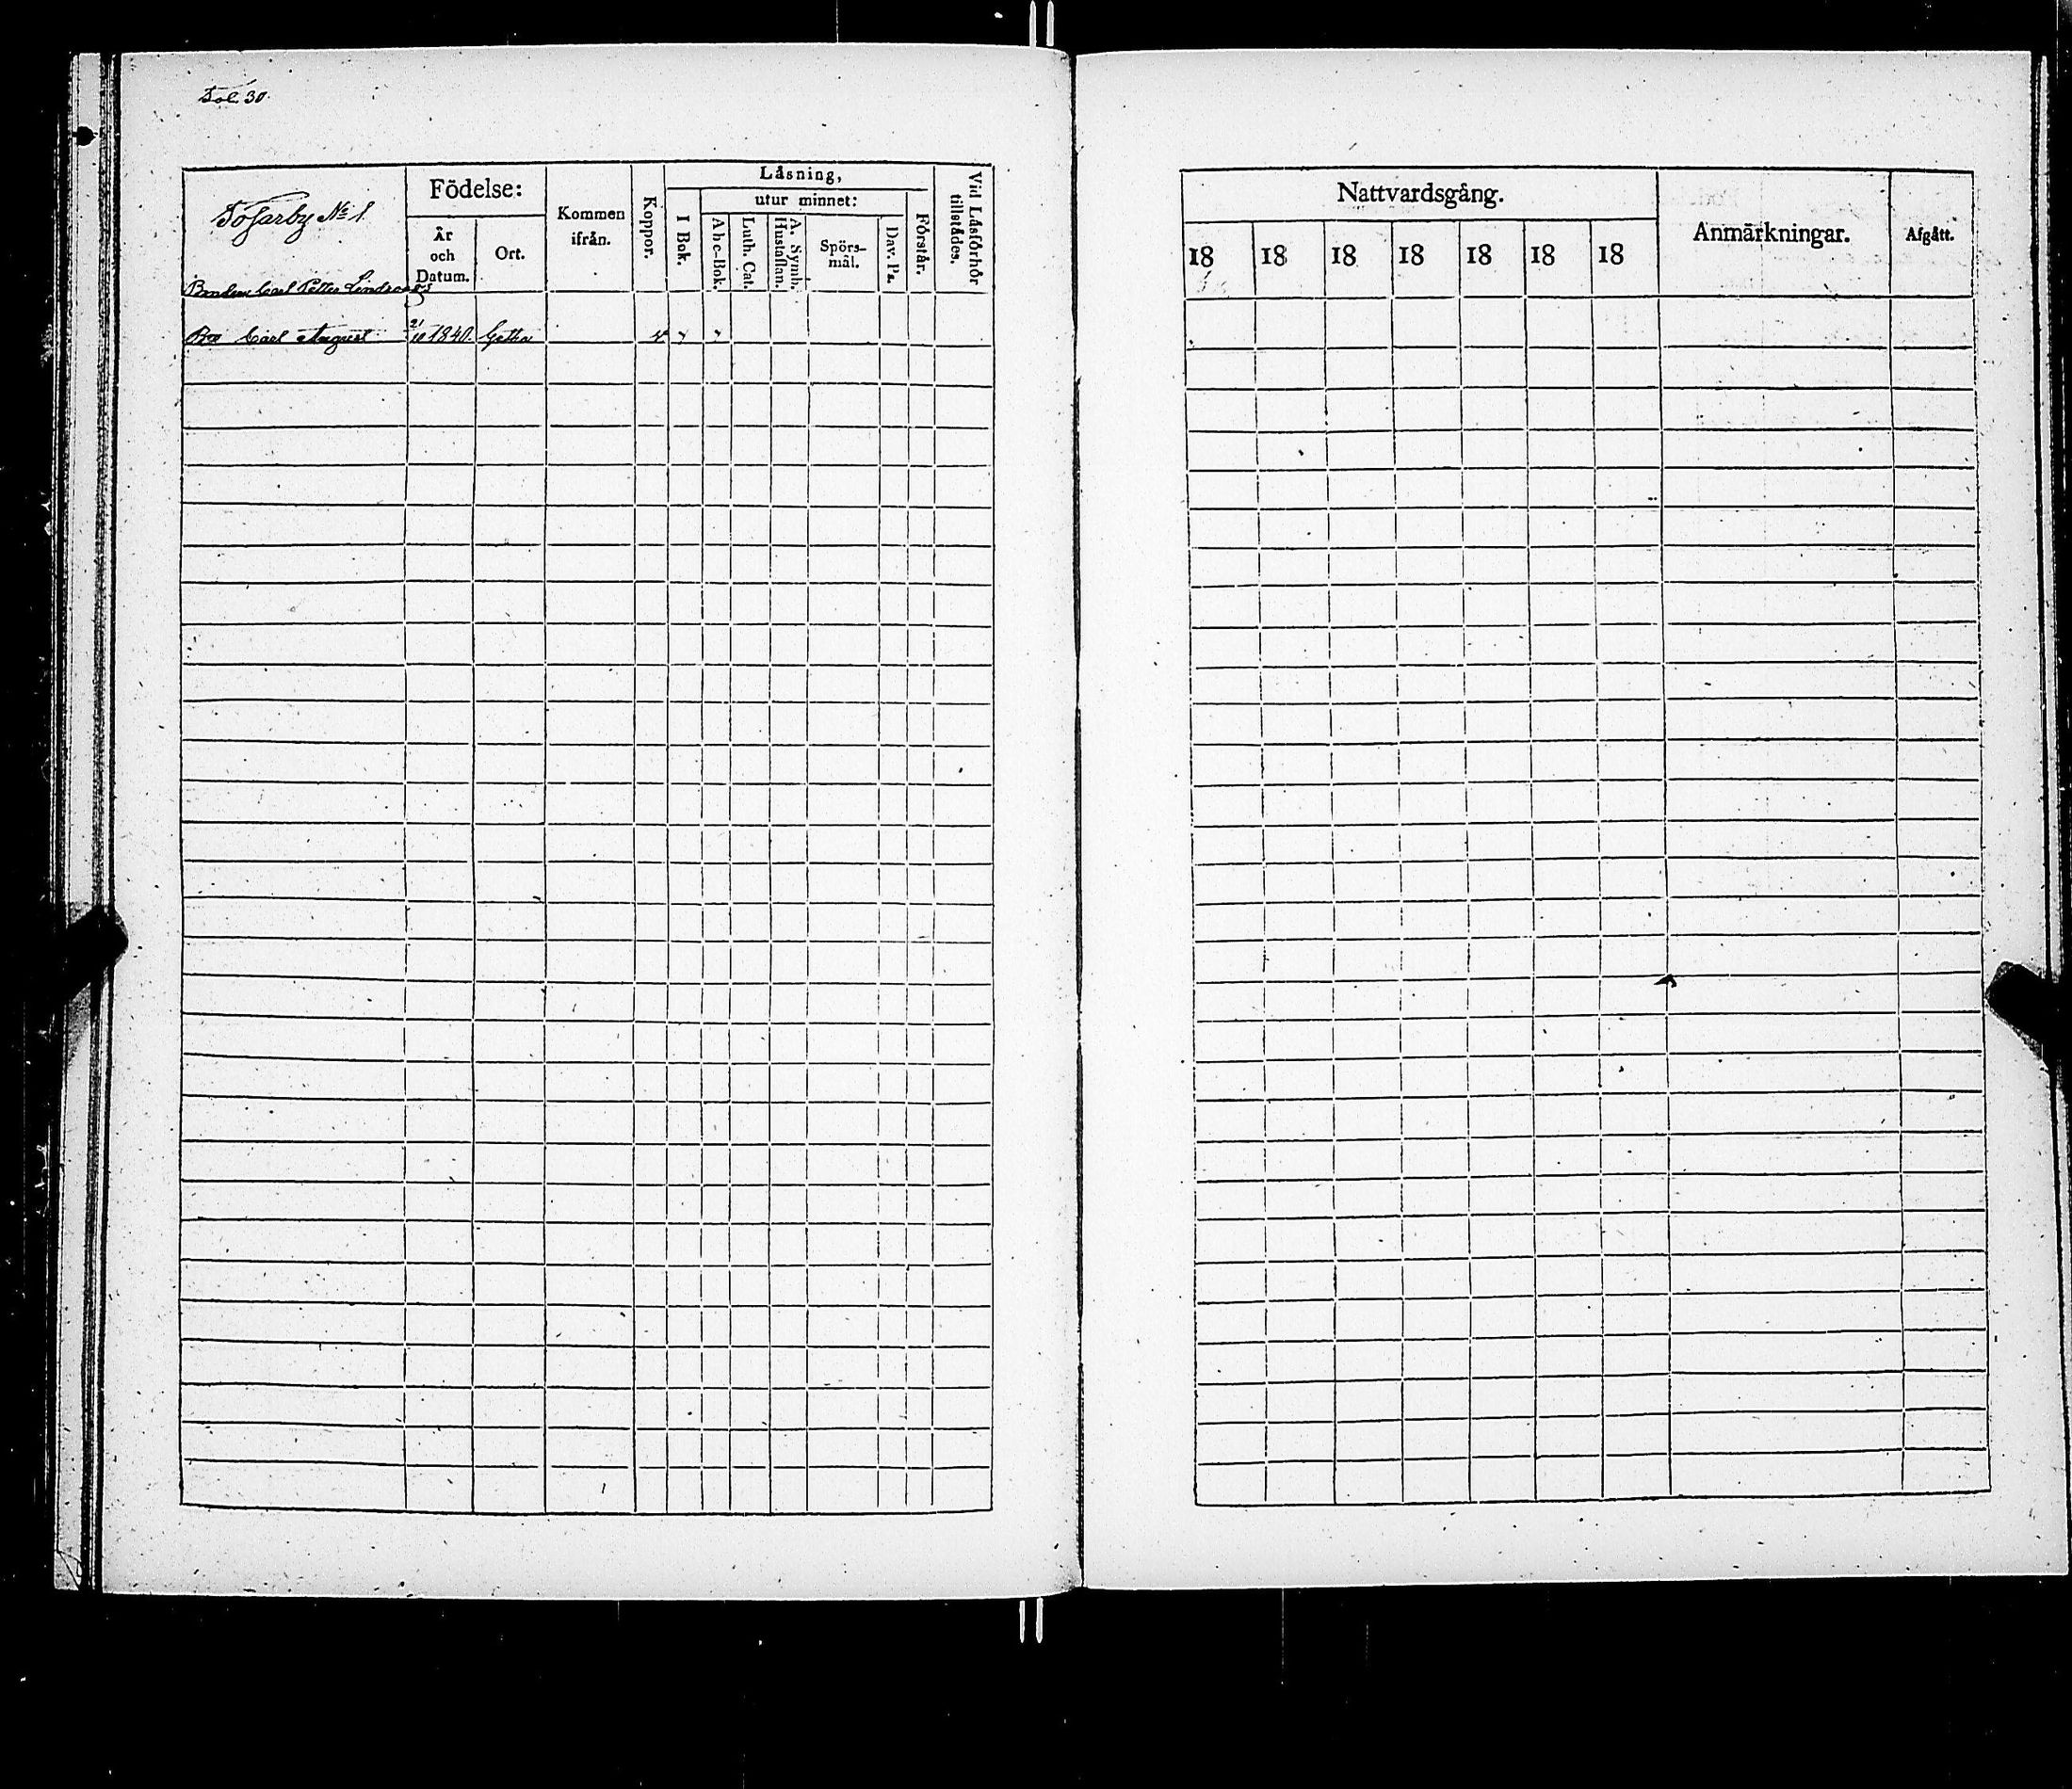 Fol. 30.
Tofarby No 1.
Födelse:
År och Datum.
Ort.
Kommen ifrån.
Koppor.
Läsning,
I Bok.
utur minnet:
Abc-Bok.
Luth. Cat.
A. Symb. Hustaflan.
Spörs-mål.
Dav. Ps.
Förstår.
Vid Läsförhör tillstädes.
Bonden Carl Petter
Carl August 21/10 1840. Getha
Nattvardsgång.
18 18 18 18 18 18 18
Anmärkningar.
Afgått.